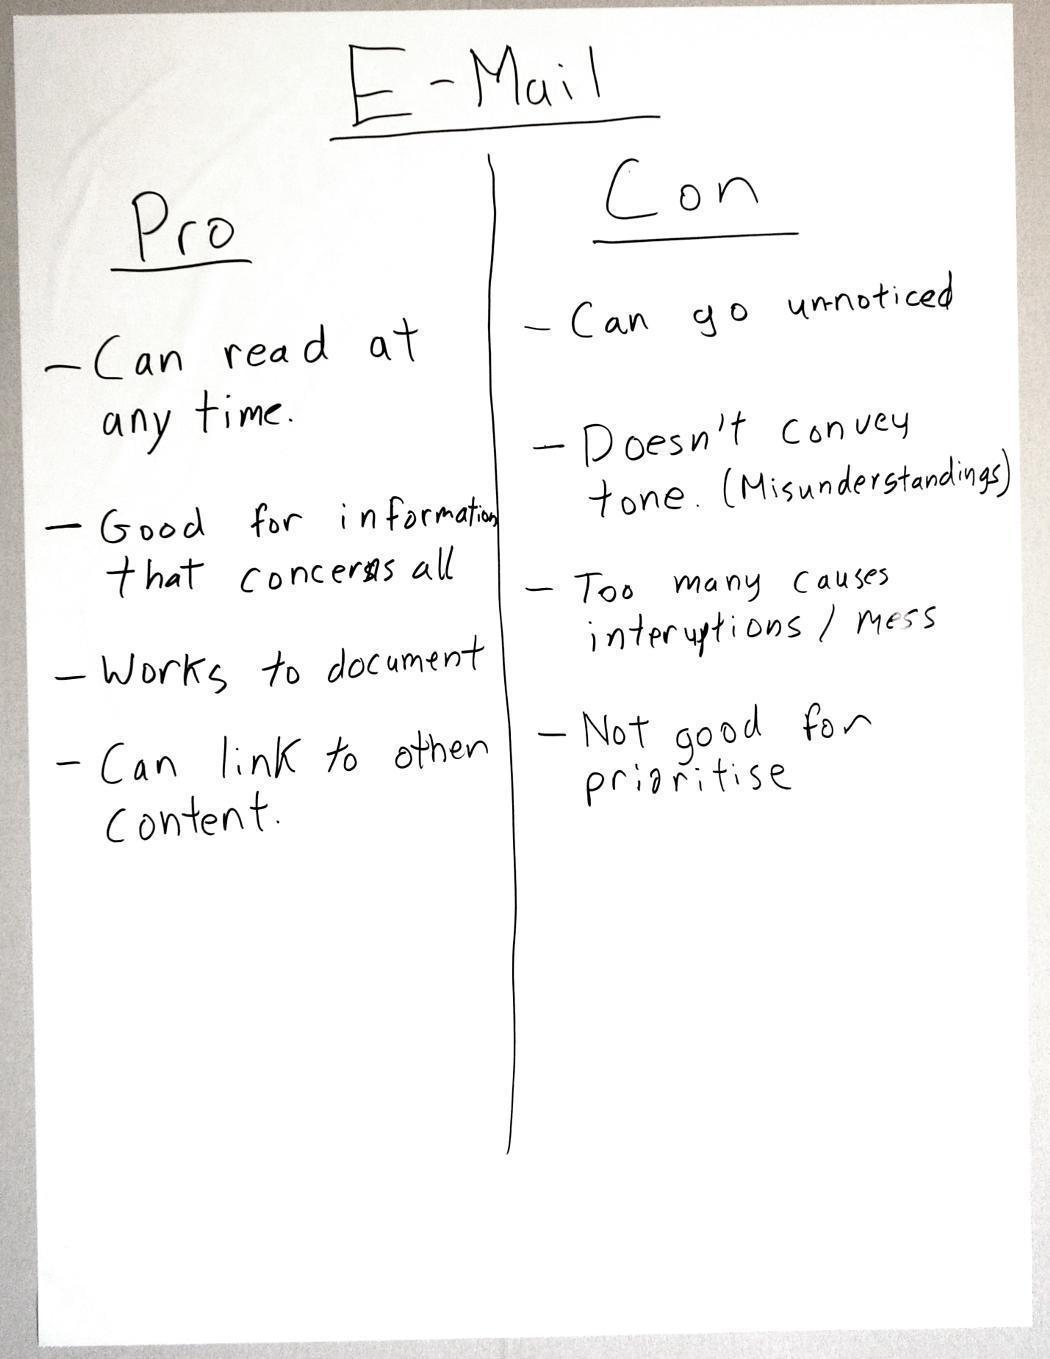 E-Mail
Pro
- Can read at
any time.
- Good for information
that concerns all
- Works to document
- Can link to other
content.
Con
- Can go unnoticed
- Doesn't convey
tone. (Misunderstandings)
- Too many causes
interuptions / mess
- Not good for
prioritise